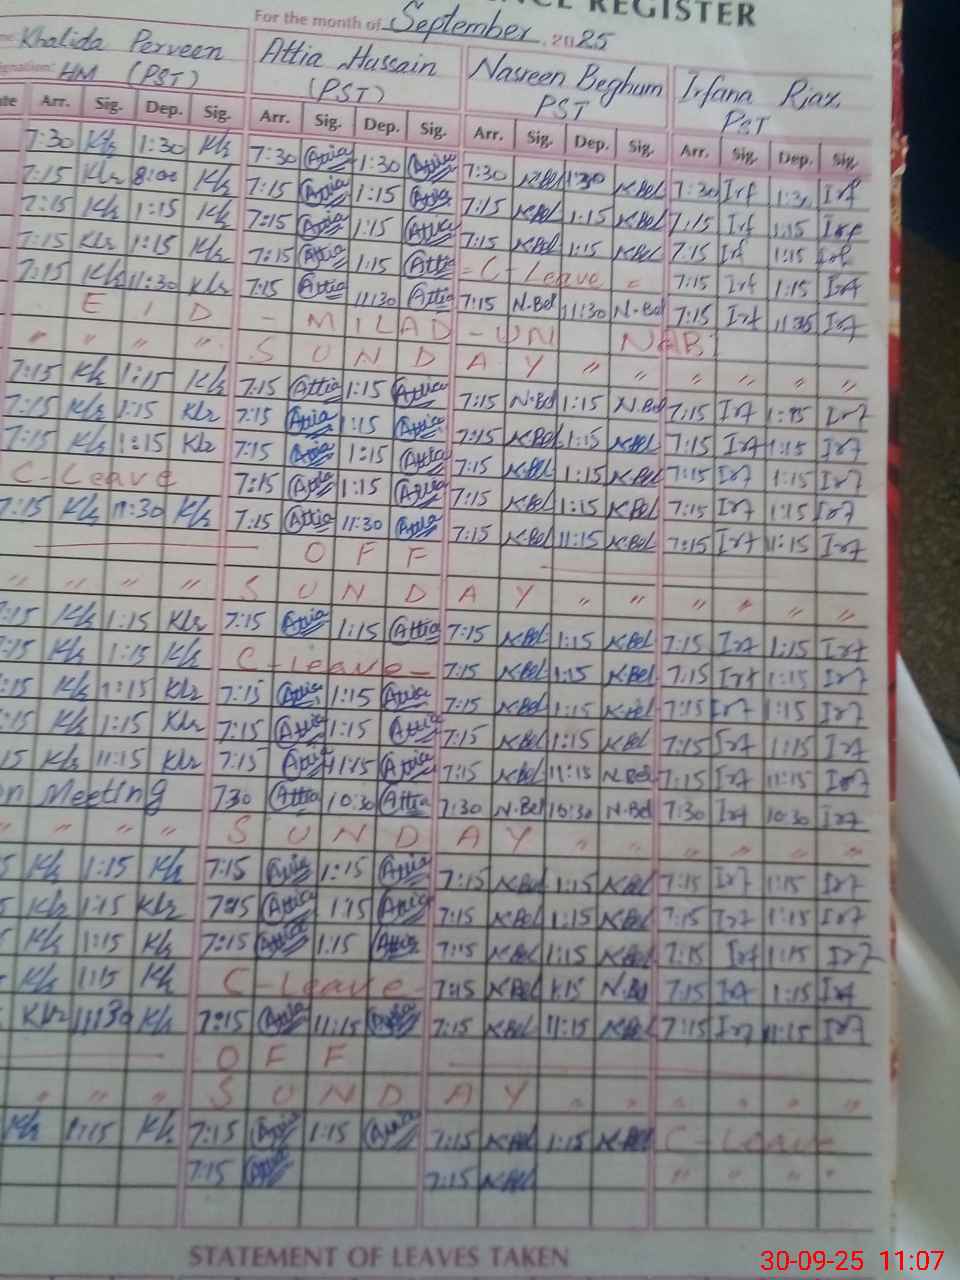 NCE REGISTER
For the month of September 2025
Khalida Perveen Attia Hussain Nasreen Beghum Irfana Riaz
HM (PST) (PST) PST PST
Arr. Sig. Dep. Sig. Arr. Sig. Dep. Sig. Arr. Sig. Dep. Sig. Arr. Sig. Dep. Sig.
7:30 Klz 1:30 Klz 7:30 Attia 1:30 Attia 7:30 N.Bel 1:30 N.Bel 7:30 Irf 1:3 Irf
7:15 Klz 8:00 Klz 7:15 Attia 1:15 Attia 7:15 N.Bel 1:15 N.Bel 7:15 Irf 1:15 Irf
7:15 Klz 1:15 Klz 7:15 Attia 1:15 Attia 7:15 N.Bel 1:15 N.Bel 7:15 Irf 1:15 Irf
7:15 Klz 1:15 Klz 7:15 Attia 1:15 Attia = C-Leave = 7:15 Irf 1:15 Irf
7:15 Klz 11:30 Klz 7:15 Attia 11:30 Attia 7:15 N.Bel 11:30 N.Bel 7:15 Irf Irf
EID - MILAD - UN NABI
" " " " SUNDAY " " " " " "
7:15 Klz 1:15 Klz 7:15 Attia 1:15 Attia 7:15 N.Bel 1:15 N.Bel 7:15 Irf 1:15 Irf
7:15 Klz 1:15 Klz 7:15 Attia 1:15 Attia 7:15 N.Bel 1:15 N.Bel 7:15 Irf 1:15 Irf
7:15 Klz 1:15 Klz 7:15 Attia 1:15 Attia 7:15 N.Bel 1:15 N.Bel 7:15 Irf 1:15 Irf
C-Leave 7:15 Attia 1:15 Attia 7:15 N.Bel 1:15 N.Bel 7:15 Irf 1:15 Irf
7:15 Klz 11:30 Klz 7:15 Attia 11:30 Attia 7:15 N.Bel 11:15 N.Bel 7:15 Irf 11:15 Irf
OFF
" " " " SUNDAY " " " " " "
7:15 Klz 1:15 Klz 7:15 Attia 1:15 Attia 7:15 N.Bel 1:15 N.Bel 7:15 Irf 1:15 Irf
7:15 Klz 1:15 Klz C-Leave - 7:15 N.Bel 1:15 N.Bel 7:15 Irf 1:15 Irf
:15 Klz 1:15 Klz 7:15 Attia 1:15 Attia 7:15 N.Bel 1:15 N.Bel 7:15 Irf 1:15 Irf
:15 Klz 1:15 Klz 7:15 Attia 1:15 Attia 7:15 N.Bel 1:15 N.Bel 7:15 Irf 1:15 Irf
15 Klz 11:15 Klz 7:15 Attia 11:15 Attia 7:15 N.Bel 11:15 N.Bel 7:15 Irf 11:15 Irf
n Meeting 730 Attia 10:30 Attia 7:30 N.Bel 10:30 N.Bel 7:30 Irf 10:30 Irf
" " " " SUNDAY " " " " " "
5 Klz 1:15 Klz 7:15 Attia 1:15 Attia 7:15 N.Bel 1:15 N.Bel 7:15 Irf 1:15 Irf
5 Klz 1:15 Klz 7:15 Attia 1:15 Attia 7:15 N.Bel 1:15 N.Bel 7:15 Irf 1:15 Irf
Klz 1:15 Klz 7:15 Attia 1:15 Attia 7:15 N.Bel 1:15 N.Bel 7:15 Irf 1:15 Irf
Klz 1:15 Klz C-Leave - 7:15 N.Bel 1:15 N.Bel 7:15 Irf 1:15 Irf
Klz 11:30 Klz 7:15 Attia 11:15 Attia 7:15 N.Bel 11:15 N.Bel 7:15 Irf 11:15 Irf
OFF
" " " SUNDAY " " " " " "
Klz 1:15 Klz 7:15 Attia 1:15 Attia 7:15 N.Bel 1:15 N.Bel C-Leave
7:15 Attia 7:15 N.Bel " " " "
STATEMENT OF LEAVES TAKEN
30-09-25 11:07